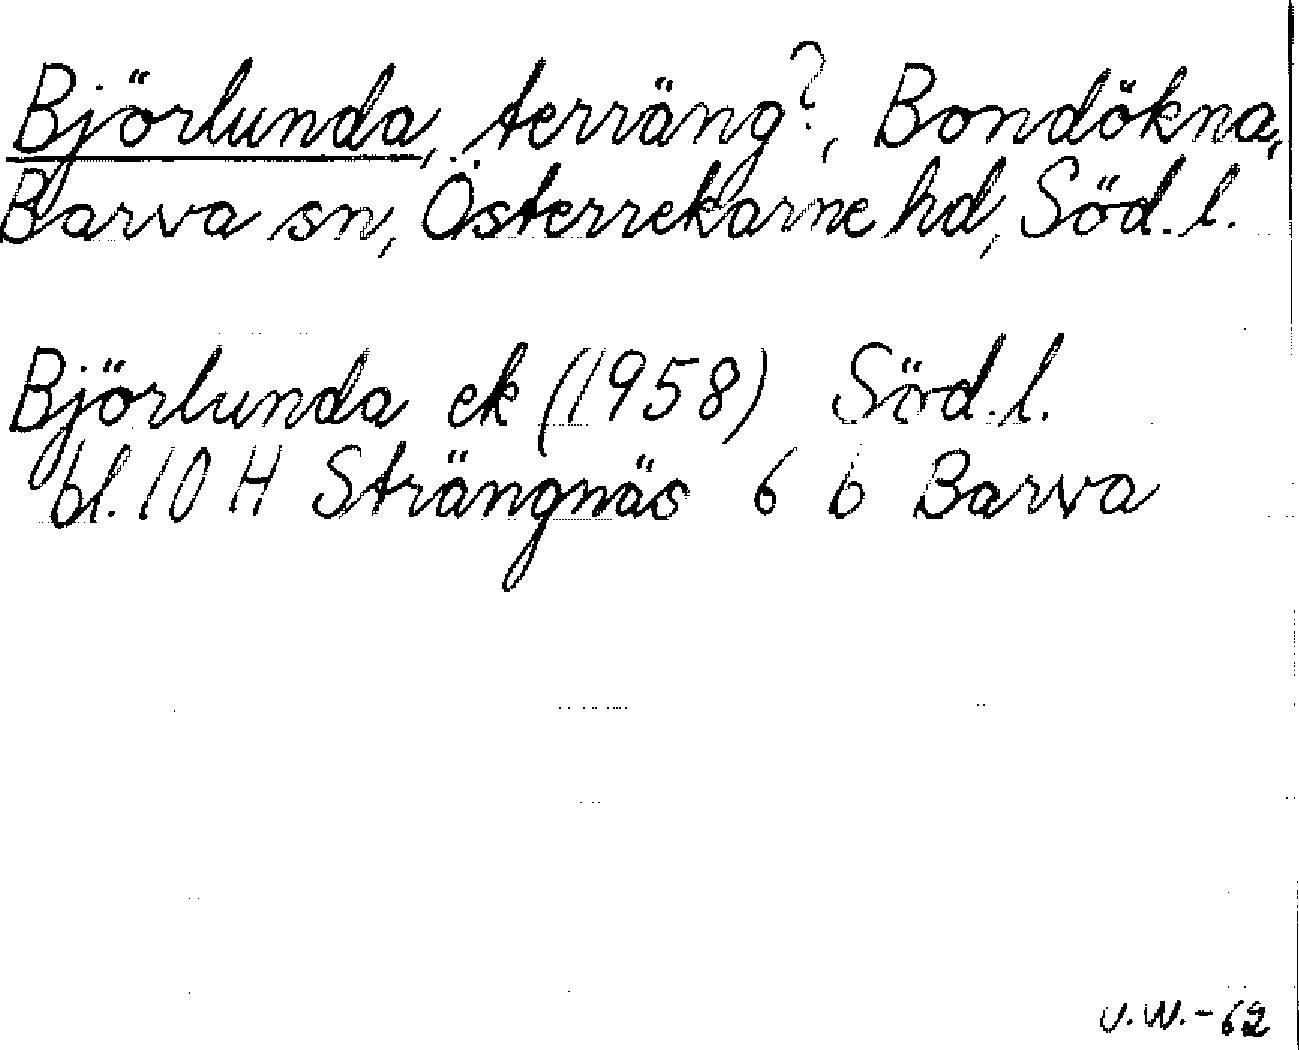 Björlunda, terräng?, Bondökna,
Barva sn, Österrekarne hd, Söd. l.
Björlunda ek (1958) Söd. l.
bl. 10 H Strängnäs 6 b Barva
U.W.-62